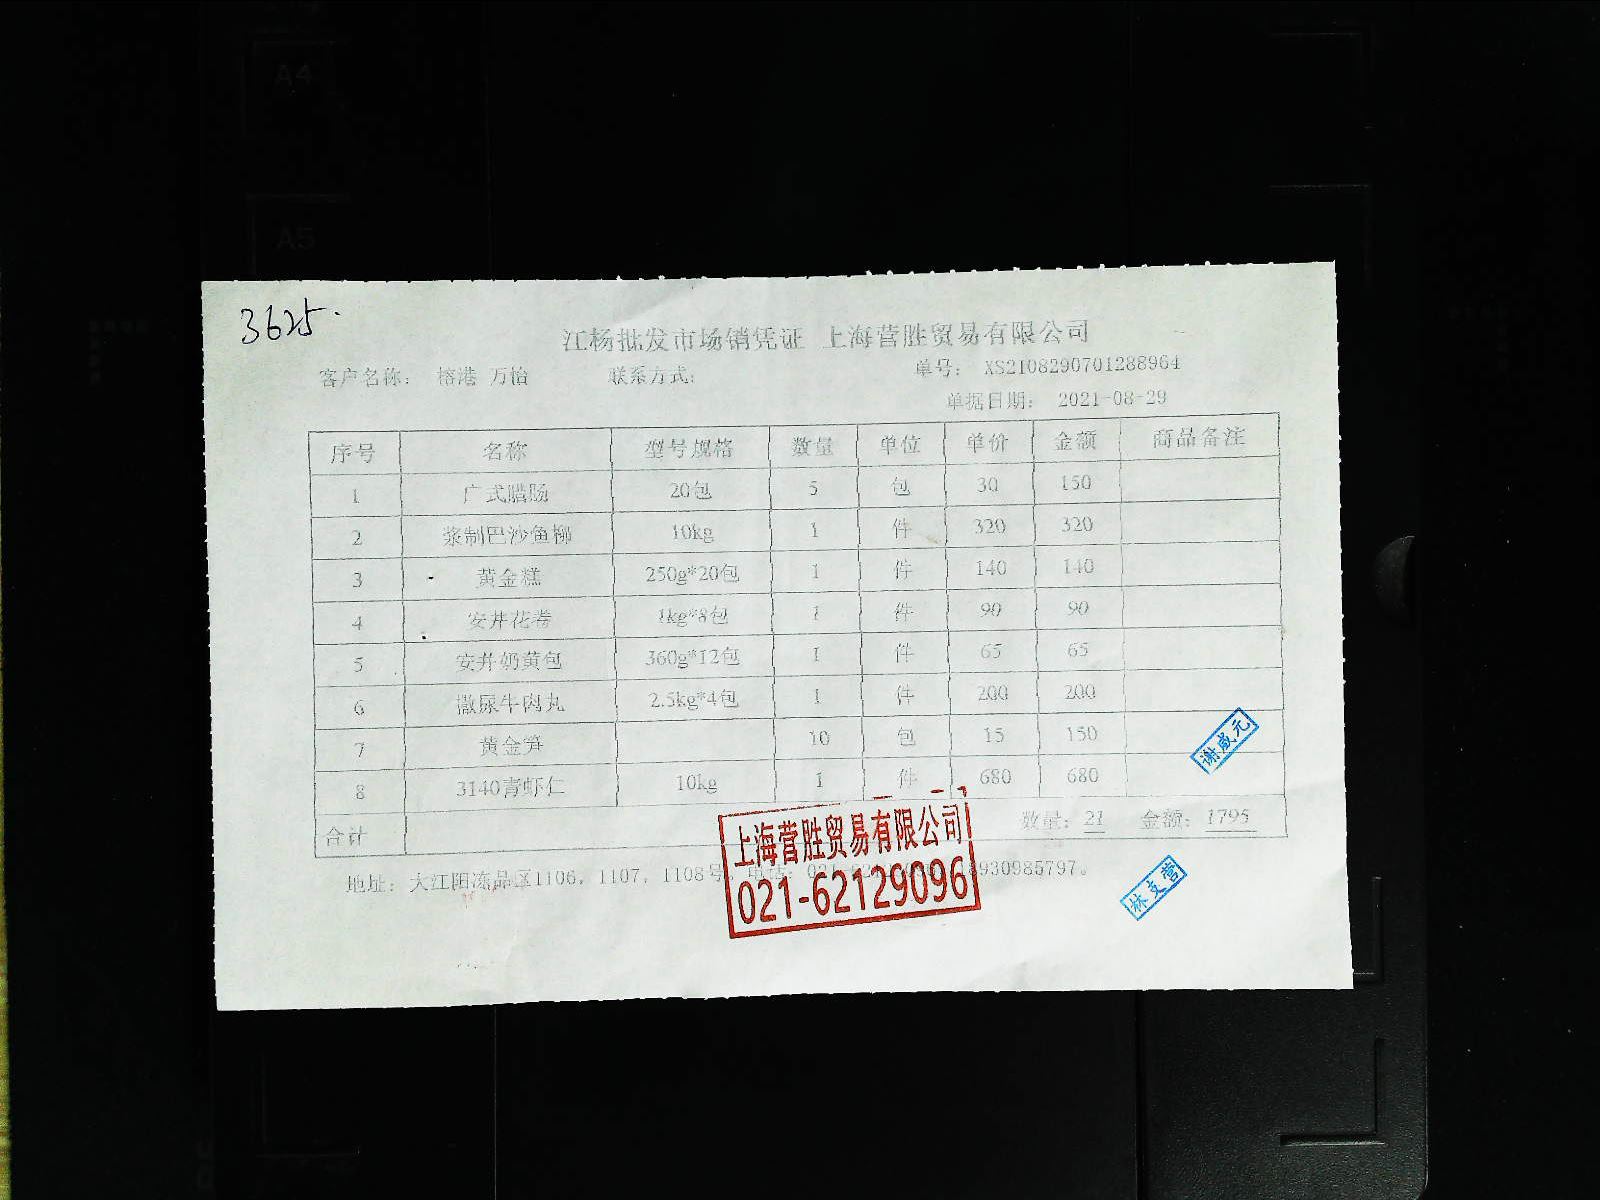 A4
A5
3625.
江杨批发市场销凭证 上海营胜贸易有限公司
客户名称： 榕港 万怡 联系方式： 单号： XS2108290701288964
单据日期： 2021-08-29
序号 名称 型号规格 数量 单位 单价 金额 商品备注
1 广式腊肠 20包 5 包 30 150
2 浆制巴沙鱼柳 10kg 1 件 320 320
3 黄金糕 250g*20包 1 件 140 140
4 安井花卷 1kg*8包 1 件 90 90
5 安井奶黄包 360g*12包 1 件 65 65
6 撒尿牛肉丸 2.5kg*4包 1 件 200 200
7 黄金笋 10 包 15 150
8 3140青虾仁 10kg 1 件 680 680
谢咸元
合计 数量：21 金额：1795
地址：大江阳冻品区1106，1107，1108号，电话：021-62129096 18930985797。
上海营胜贸易有限公司
021-62129096
林支营